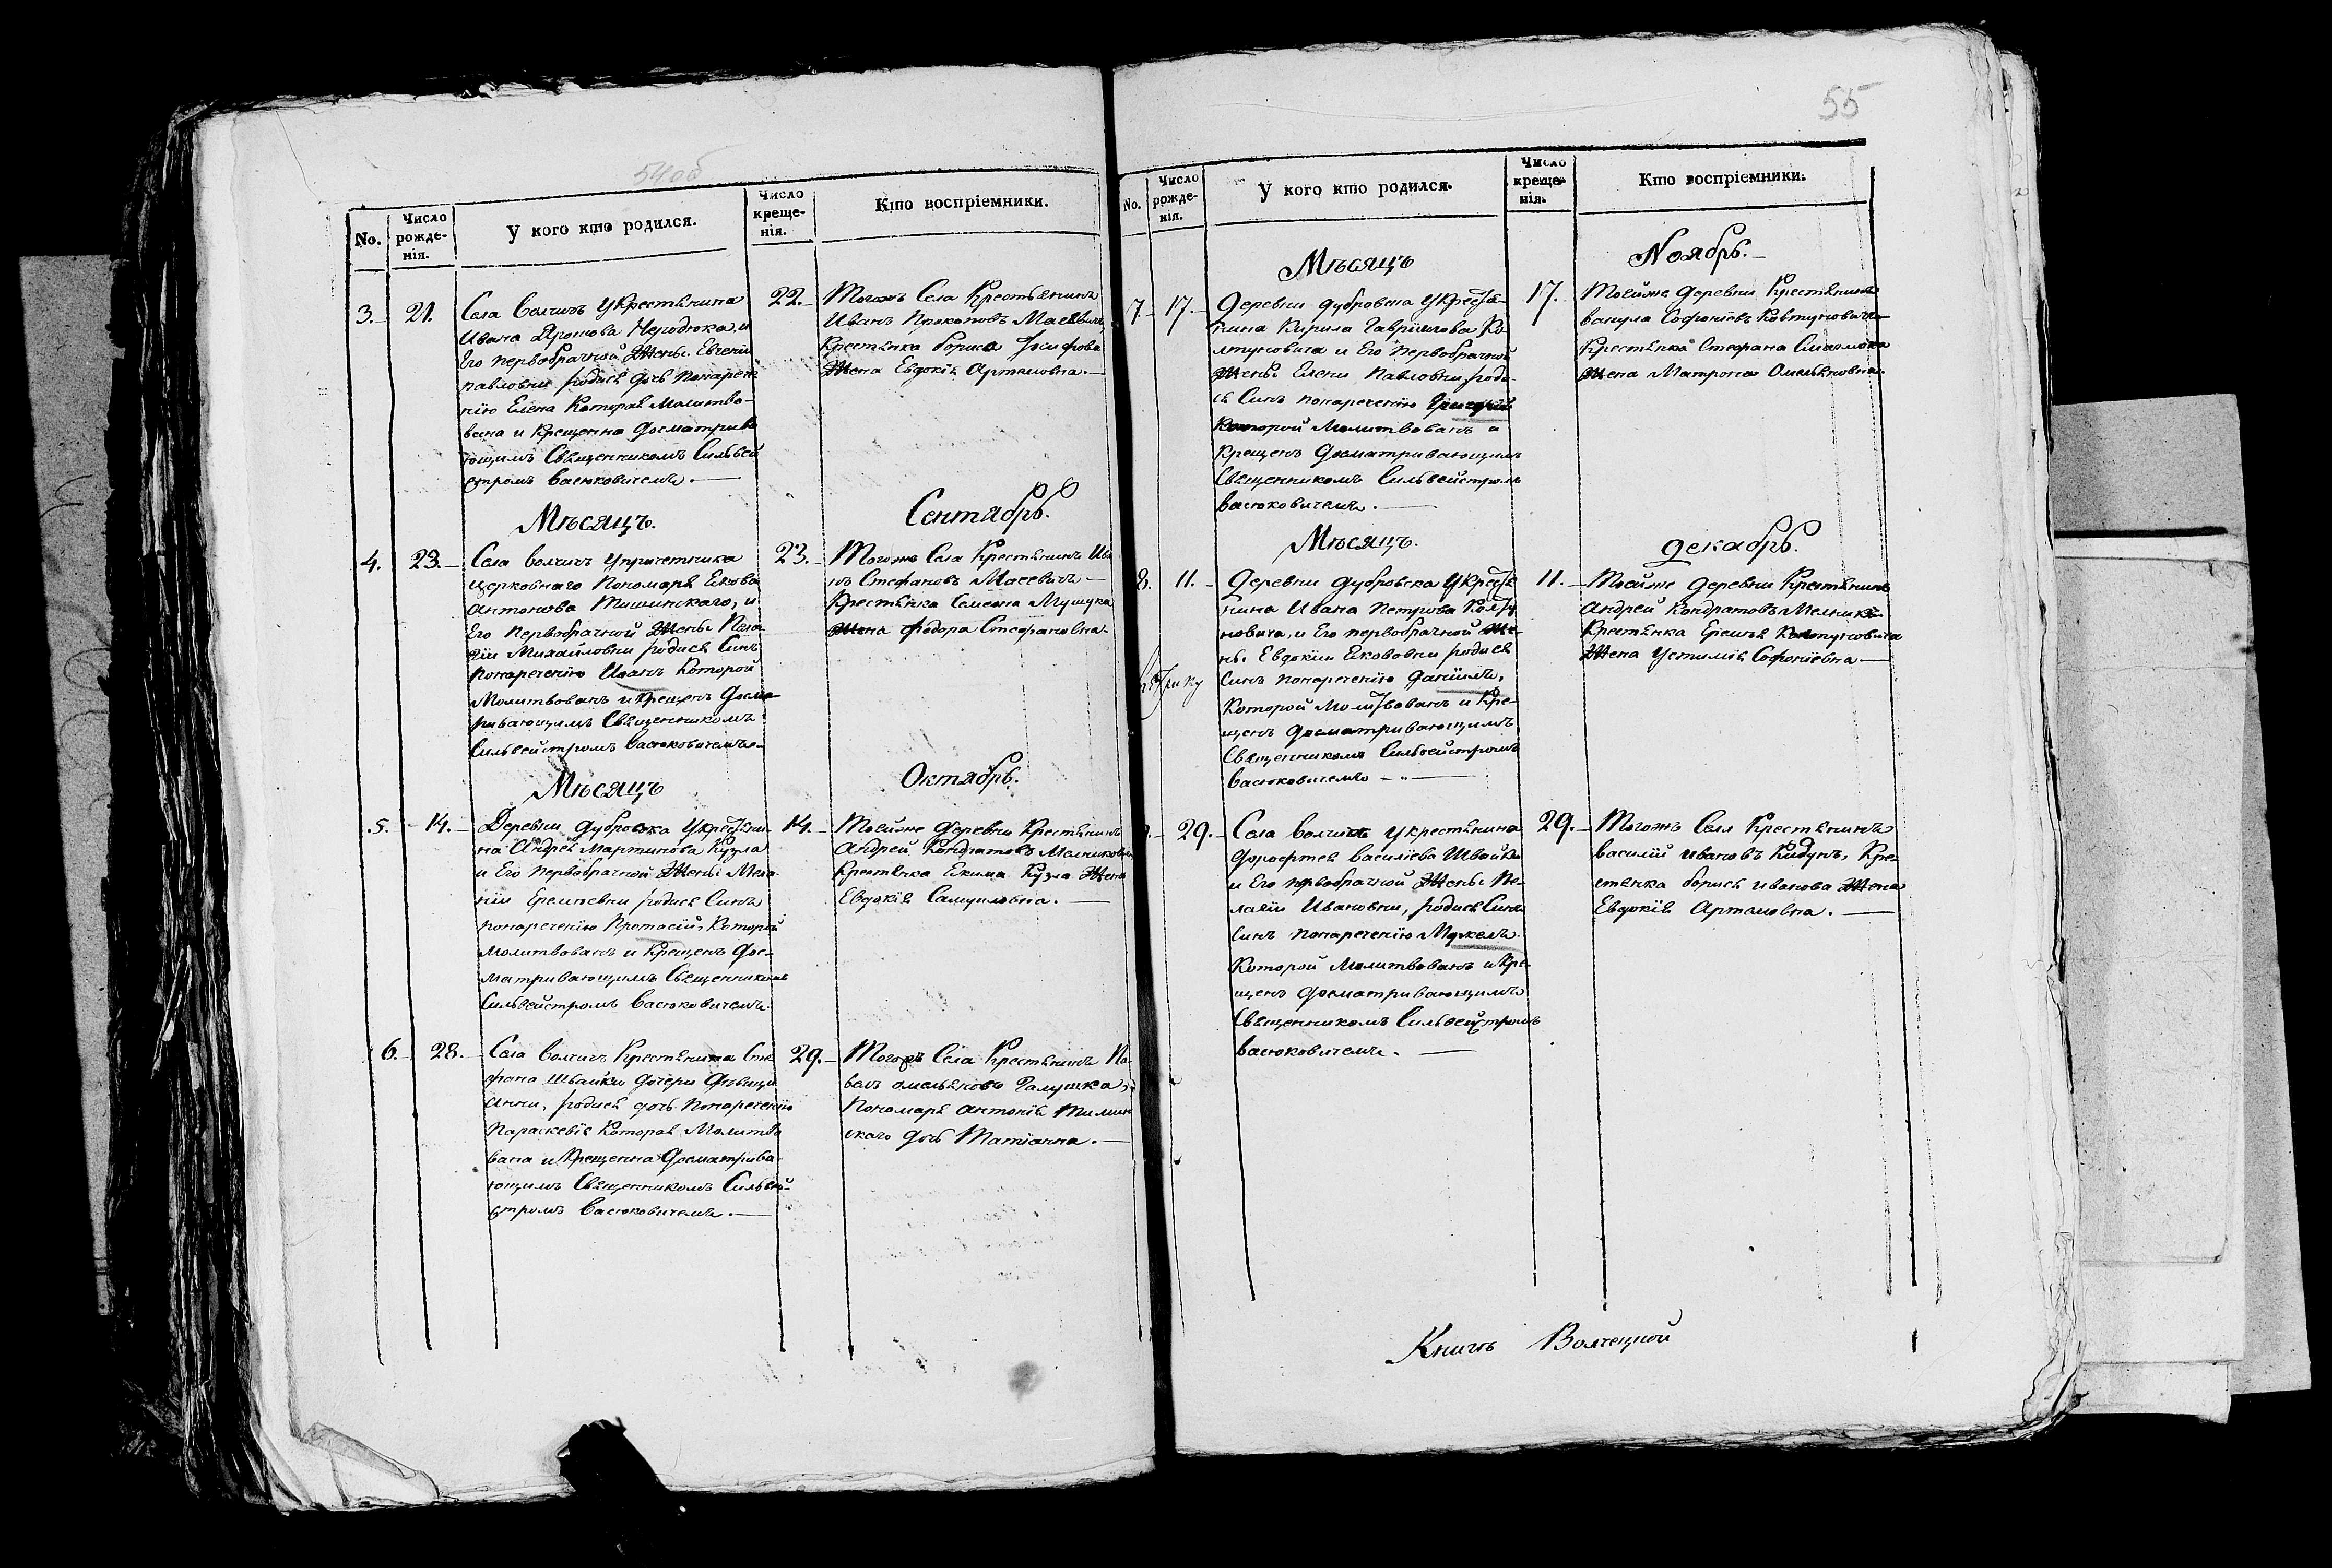 54об
No.
Число рожде-
нія.
У кого кто родился.
Число
креще-
нія.
Кто воспріемники.
3. 21.
Села Волчичъ Укрестянина
Ивана
Его первобрачной Жены Евгеніи
павловни родися дочь понарече
нію Елена Которая Молитво-
вана и Крещенна досматрива
ющимъ Священникомъ Сильвей
стромъ Васюковичемъ.
22.
Тогожъ Села Крестянинъ
Иванъ Прокоповъ Масевичъ
Крестянка бориса Іосифова
Жена Евдокія Артемовна.
Мѣсяцъ.
Сентябрь.
4. 23.
Села Волчичъ Упричетника
церковнаго Пономаря Якова
антоніова Тишинскаго, и
Его первобрачной Жены Пела
гіи Михайловни родися Синъ
понаречению Иоанъ Которой
Молитвованъ и Крещенъ досмат
ривающимъ Священникомъ
Сильвейстромъ Васюковичемъ.
23.
Тогожъ Села Крестянинъ Ива
нъ Стефановъ Масевичъ
Крестянка Семена Мушука
Жена Федора Стефановна.
Мѣсяцъ
Октябрь.
5. 14.
Деревни дубровка Укрестяни-
на Андрея Мартинова Кузла
и Его первобрачной Жены Мела
ніи Еремѣевни родися Синъ
понаречению Протасій, Которой
молитвованъ и Крещенъ дос-
матривающимъ Священникомъ
Сильвейстромъ Васюковичемъ.
14.
Тойже деревни Крестянинъ
Андрей Кондратовъ
Крестянка Екима Кузла Жена
Евдокія Самуиловна.
6. 28.
Села Волчичъ Крестянина Сте
фана Швайки дочери дѣвици
Анни, родися дочь понаречению
Параскевія Которая Молитво
вана и Крещенна досматрива-
ющимъ Священникомъ Сильвей-
стромъ Васюковичемъ.
29.
Тогожъ Села Крестянинъ Па-
велъ омеляновъ Галушка,
Пономаря антонія Тишин
скаго дочь Татіанна.
55
No.
Число
рожде-
нія.
У кого кто родился.
Число
креще-
нія.
Кто воспріемники.
Мѣсяцъ
Ноябрь.
7. 17.
Деревни дубровка Укрестя-
нина Кирила Гавриилова Ко-
лтуновича и Его первобрачной
Жены Елени Павловни роди-
ся Синъ понаречению Григорій
Которой Молитвованъ и
Крещенъ досматривающимъ
Священникомъ Сильвейстромъ
Васюковичемъ.
17.
Тойже деревни Крестянинъ
вакула Софоніевъ Ковтуновичъ
Крестянка Стефана
Жена Матрона Омеляновна.
Мѣсяцъ.
декабрь.
8. 11.
Деревни дубровка Укрестя
нина Ивана Петрова Колту
новича, и Его первобрачной Же-
ны Евдокіи Яковлевни родися
Синъ понаречению даніилъ,
Которой Молитвованъ и Кре-
щенъ досматривающимъ
Священникомъ Сильвейстромъ
Васюковичемъ
11.
Тойже деревни Крестянинъ
Андрей Кондратовъ
Крестянка Еремѣя Колтуновича
Жена Устимія Софоніевна
29.
Села Волчичъ Укрестянина
дорофтея Василіева Швайки
и Его первобрачной Жены Пе-
лагіи Ивановни, родися Синъ
Синъ понаречению
Которой Молитвованъ и Кре-
щенъ досматривающимъ
Священникомъ Сильвейстромъ
Васюковичемъ.
29.
Тогожъ Села Крестянинъ
Василій ивановъ Кидунъ, Кре-
стянка бориса иванова Жена
Евдокія Артемовна.
Книгъ Волчецкой